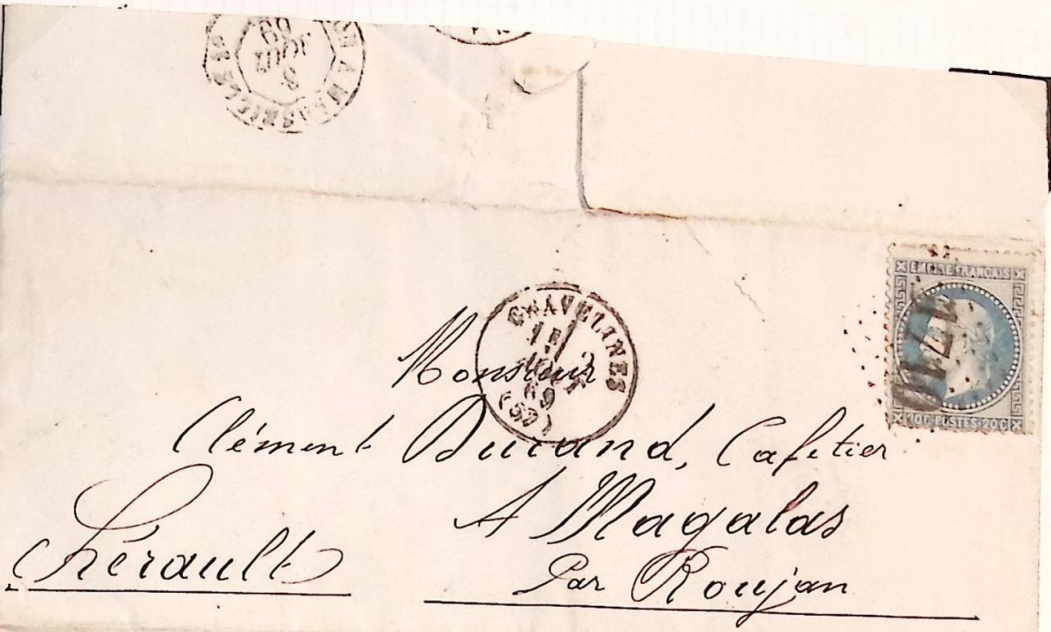 A MARSEILLE
AOUT
69
GRAVELINES
15
AOUT
69
(57)
EMPIRE FRANÇAIS
1740
20C POSTES 20C
Monsieur
Clément Durand, Cafetier
A Magalas
Par Roujan
Hérault